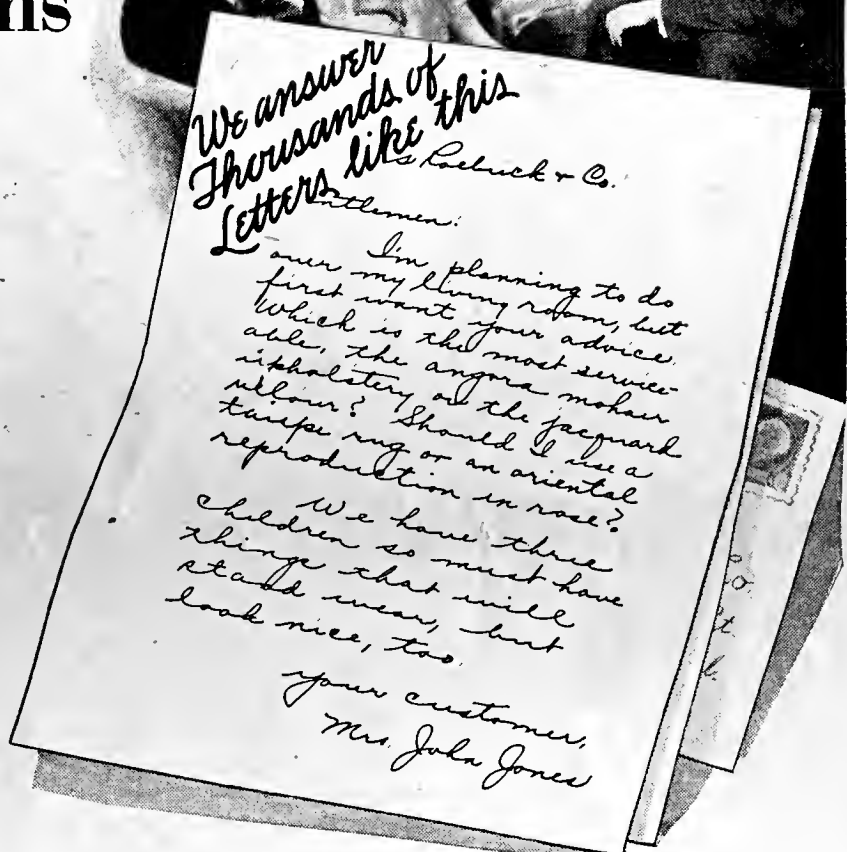 ns
We answer
Thousands of
Letters like this
s Roebuck & Co.
ntlemen:
I'm planning to do
over my living room, but
first want your advice.
Which is the most service-
able, the angora mohair
upholstery or the jacquard
velour? Should I use a
taupe rug or an oriental
reproduction in rose?
We have three
children so must have
things that will
stand wear, but
look nice, too.
Your customer,
Mrs. John Jones
Co.
St.
l.